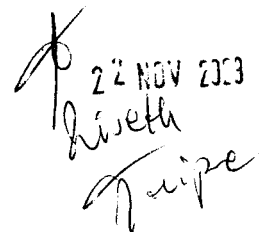 22 NOV 2023
Liseth
Quipe